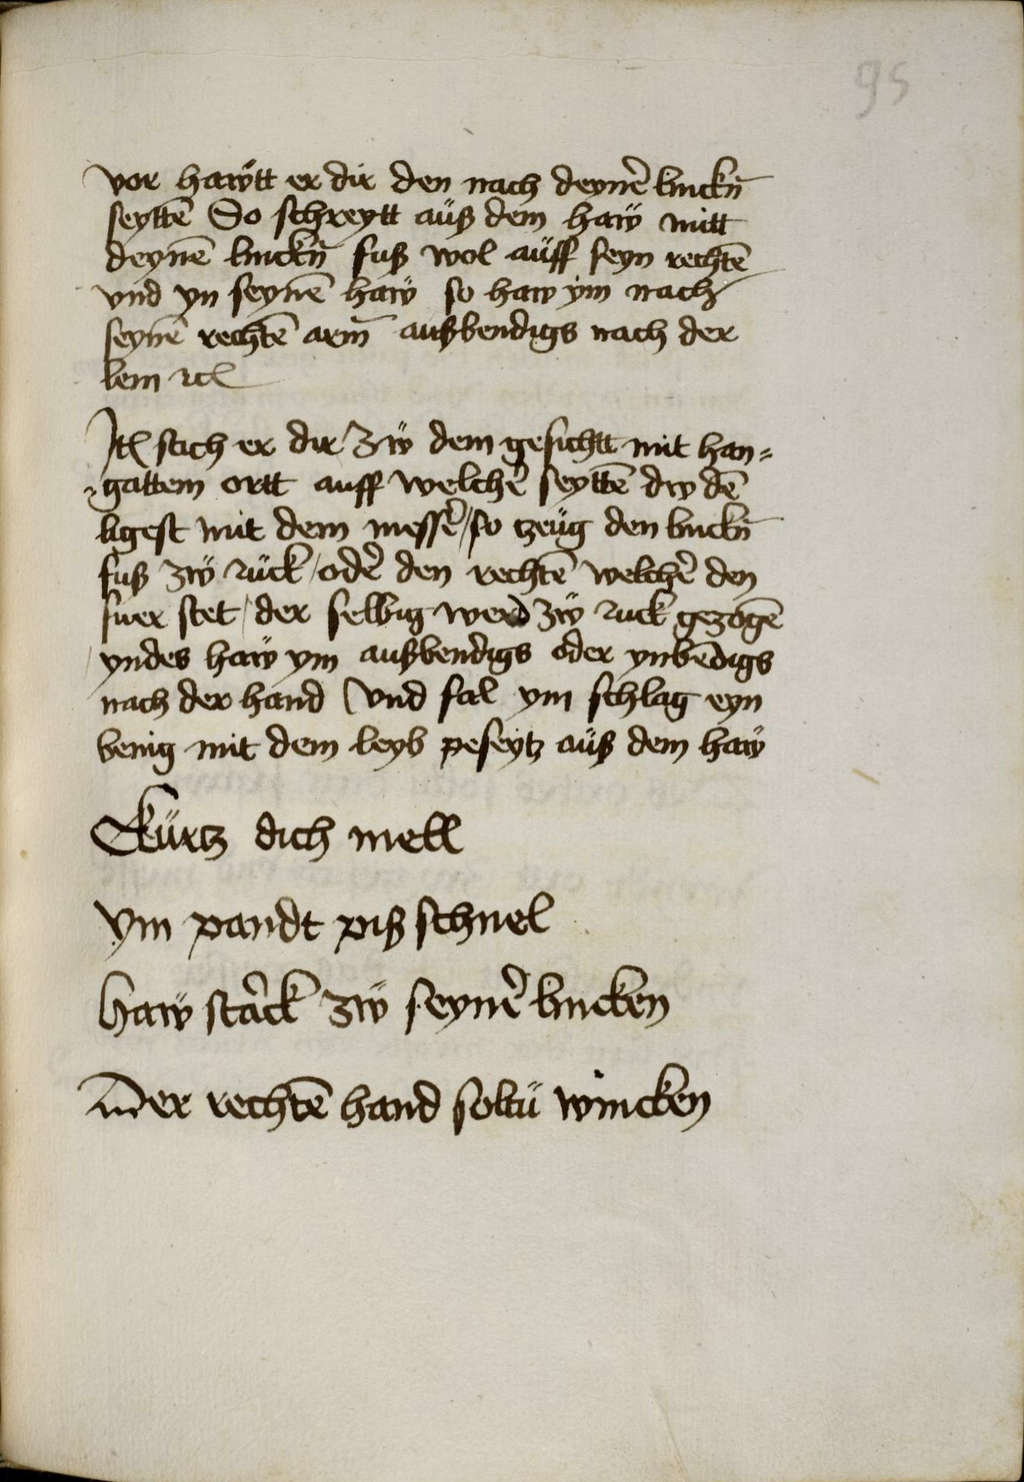 95
vor hawtt er dir den nach deynē linckñ
seyttē So schreytt aüß dem haẅ mitt
deynē linckñ fuß wol aüff seyn rechtē
vnd yn seynē haẅ so haw ym nach
seynē rechtē arm̄ außbendigs nach der
lem ꝛcꝭ
Itꝭ stich er dir zẅ dem gesichtt mit han=
gattem ortt auff welchẽ seyttē dw dē
ligest mit dem messẽ / so tzeüg den linckñ
fuß zẅ rück / odẽ den rechtē welchẽ den
fuer stet / der selbig werd zẅ ruck gezogē
yndes haẅ ym außbendigs oder ynbēdigs
nach der hand Vnd fal ym schlag eyn
benig mit dem leyb peseytz aüß dem haẅ
Kürtz dich mell
ym pandt piß schnel
haẅ starck zẅ seynẽ lincken
der rechtē hand soltü wincken